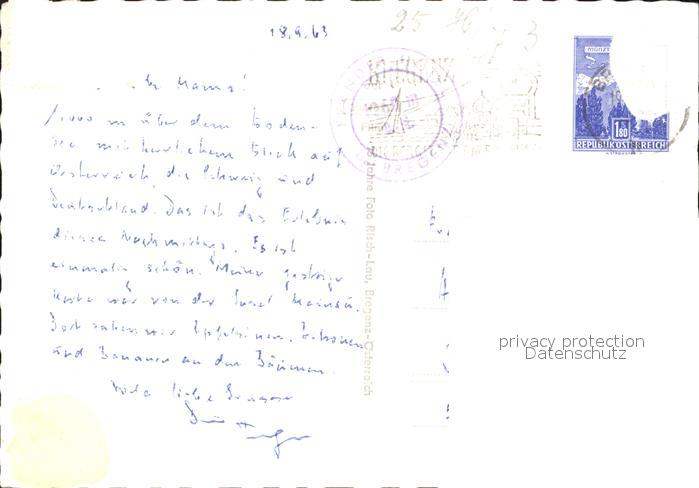 18.9.63
25
3
Mama!
1000 m über dem Boden-
see mit herrlichem Blick auf
Oesterreich, die Schweiz und
Deutschland. Das ist das Erlebnis
dieses Nachmittags. Es ist
einmalig schön. Meine gestrige
Karte war von der Insel Mainau.
Dort sahen wir Apfelsinen, Zitronen
und Bananen an den Bäumen.
Viele liebe Grüsse
BREGENZ
Jahre Foto Risch-Lau, Bregenz-Österreich
MÜNZT
1.80
REPUBLIK ÖSTERREICH
privacy protection
Datenschutz